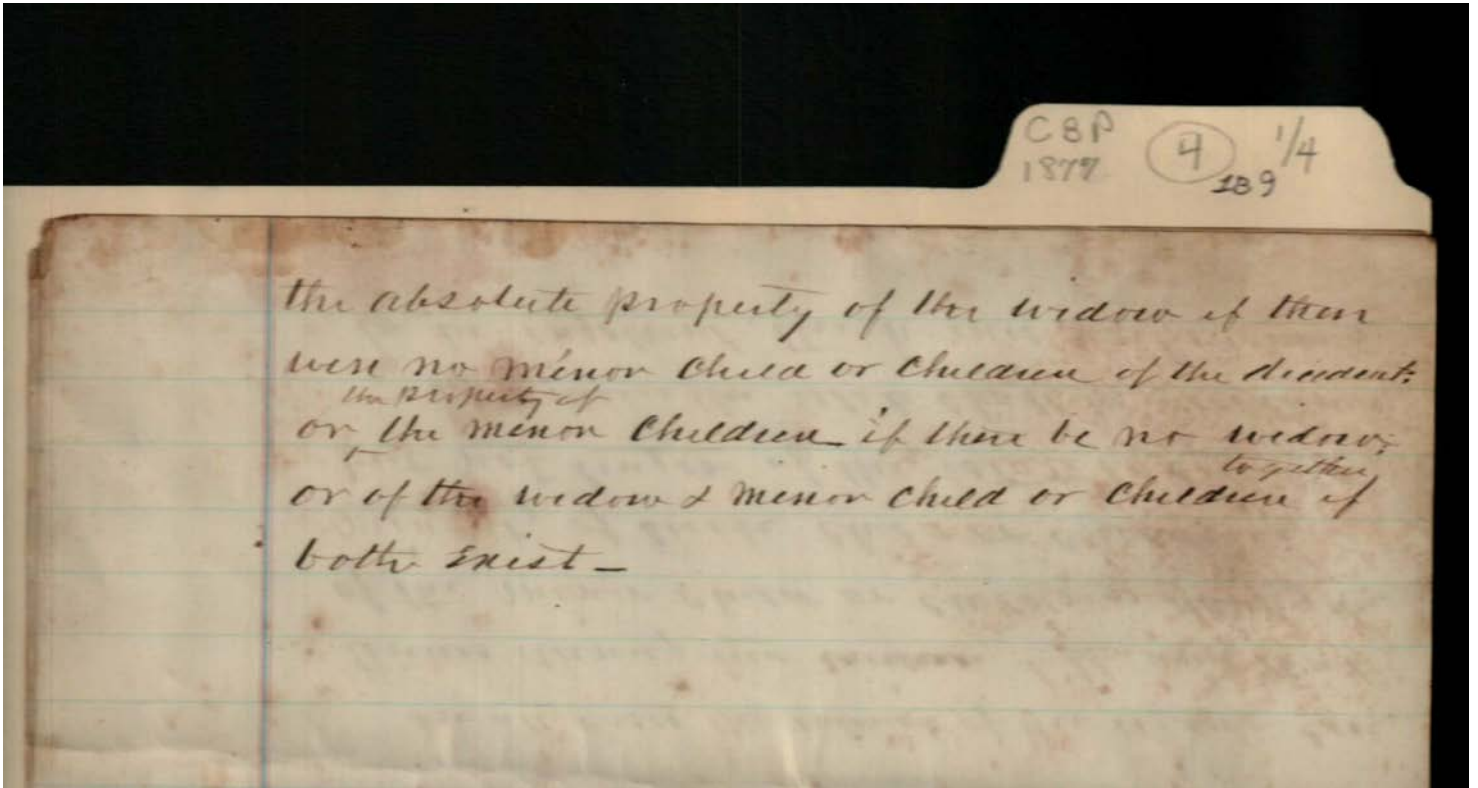 CBP
1877
4
1/4
189
the absolute property of the widow if there
were no minor child or children of the decedent;
the property of
or the minor children if there be no widow;
together
or of the widow & minor child or children if
both exist —